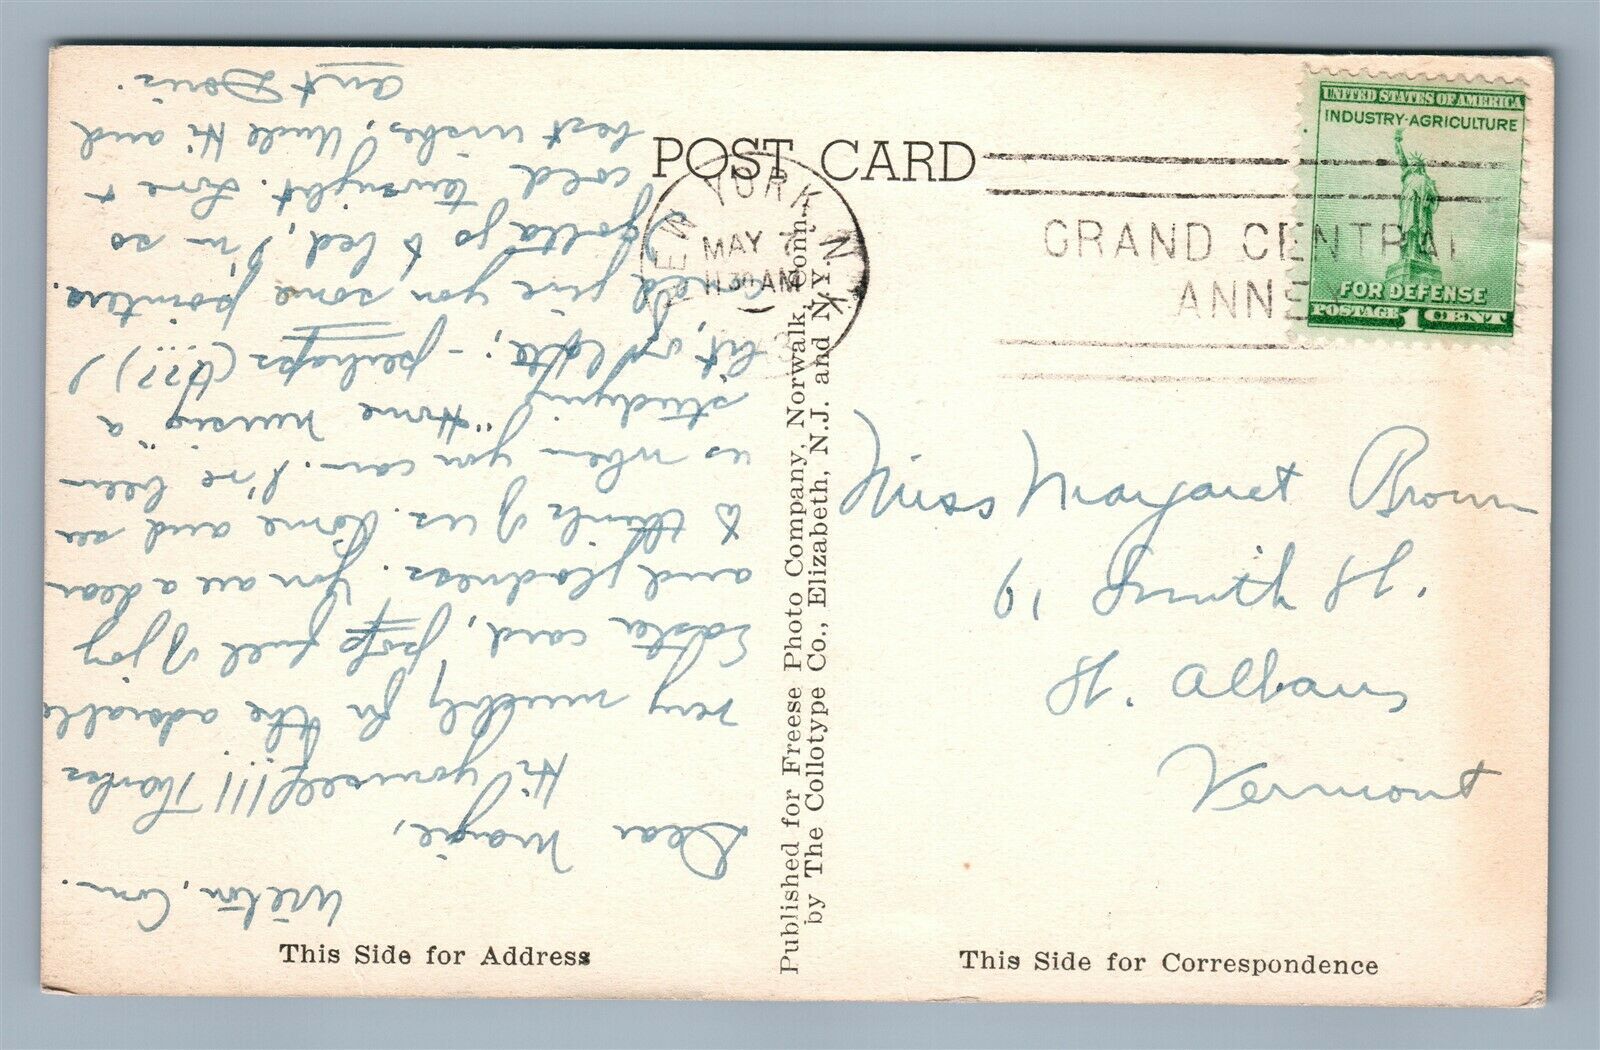 POST CARD
NEW YORK, N.Y.
MAY
11 30 AM
GRAND CENTRAL
ANNEX
UNITED STATES OF AMERICA
INDUSTRY-AGRICULTURE
FOR DEFENSE
POSTAGE 1 CENT
Miss Margaret Brown
61 Smith St.
St. Albans
Vermont
This Side for Correspondence
Published for Freese Photo Company, Norwalk, Conn.
by The Collotype Co., Elizabeth, N.J. and N.Y.
This Side for Address
Wilton, Con.
Dear Margie,
Hi yourself!!! Thanks
very muchly for the adorable
Easter card, full of joy
and gladness. You are a dear
to think of us. Come and see
us when you can. I've been
studying "Home nursing" a
bit, o' late; - perhaps (???...)
I could give you some pointers.
gotta go to bed, I'm so
cold tonight. Love +
best wishes, Uncle Hi and
Aunt Doris.